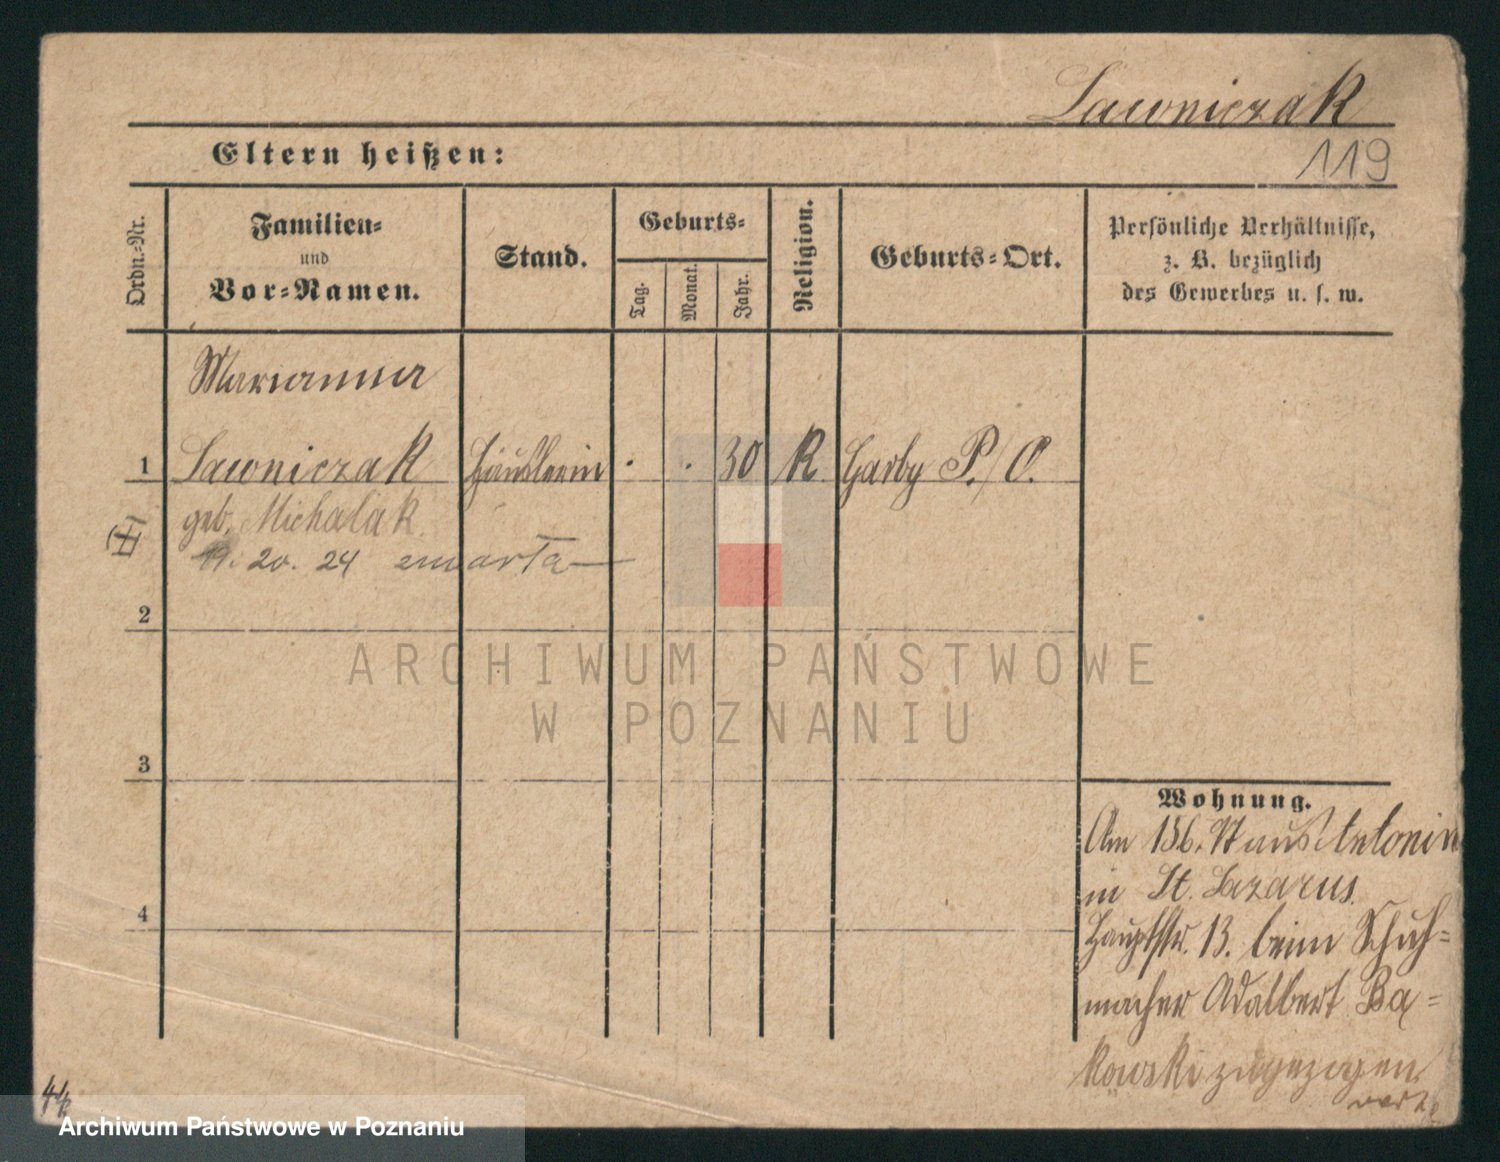 Lawniczak
119
Eltern heißen:
Ordn.-Nr.
Familien-
und
Vor-Namen.
Stand.
Geburts-
Tag.
Monat.
Jahr.
Religion.
Geburts-Ort.
Persönliche Verhältnisse,
z. B. bezüglich
des Gewerbes u. s. w.
Marianna
1 Lawniczak Häuslerin . . 30 K Garby P./O.
geb. Michalak
19. 20. 24
2
3
4
Wohnung.
Am 15 6. 97 aus Antonin
in St. Lazarus
Hauptstr. 13. beim Schuh-
macher Adalbert Ba-
kowski zugezogen
ARCHIWUM PAŃSTWOWE
W POZNANIU
Archiwum Państwowe w Poznaniu